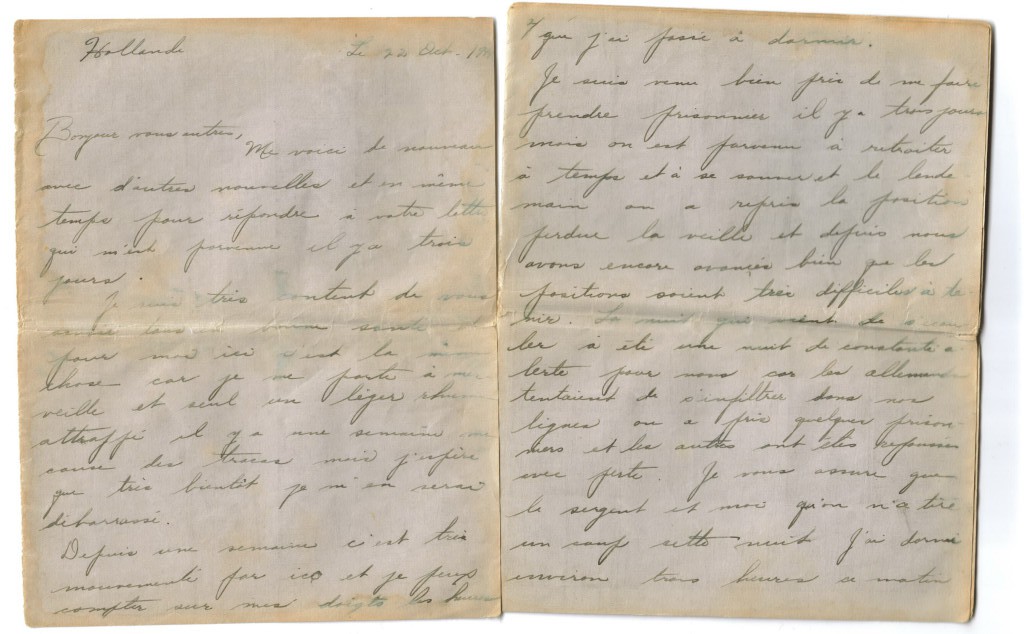 Hollande Le 22 Oct. 19
Bonjour vous autres,
Me voici de nouveau
avec d'autres nouvelles et en même
temps pour répondre à votre lettre
qui m'est parvenue il y a trois
jours.
Je suis très content de vous
savoir tous en bonne santé et
pour moi ici c'est la même
chose car je me porte à mer
veille et seul un léger rhume
attrappé il y a une semaine me
cause des tracas mais j'espère
que très bientôt je m'en serai
débarrassé.
Depuis une semaine c'est très
mouvementé par ici et je peux
compter sur mes doigts les heures
que j'ai passé à dormir.
Je suis venu bien près de me faire
prendre prisonnier il y a trois jours
mais on est parvenu à retraiter
à temps et à se sauver et le lende
main on a repris la position
perdue la veille et depuis nous
avons encore avancés bien que les
positions soient très difficiles à te
nir. La nuit qui vient de s'écou
ler à été une nuit de constante a
lerte pour nous car les allemands
tentaient de s'infiltrer dans nos
lignes on a pris quelques prison
niers et les autres ont étés repoussés
avec perte. Je vous assure que
le sergent et moi qu'on n'a tiré
un coup cette nuit J'ai dormi
environ trois heures ce matin